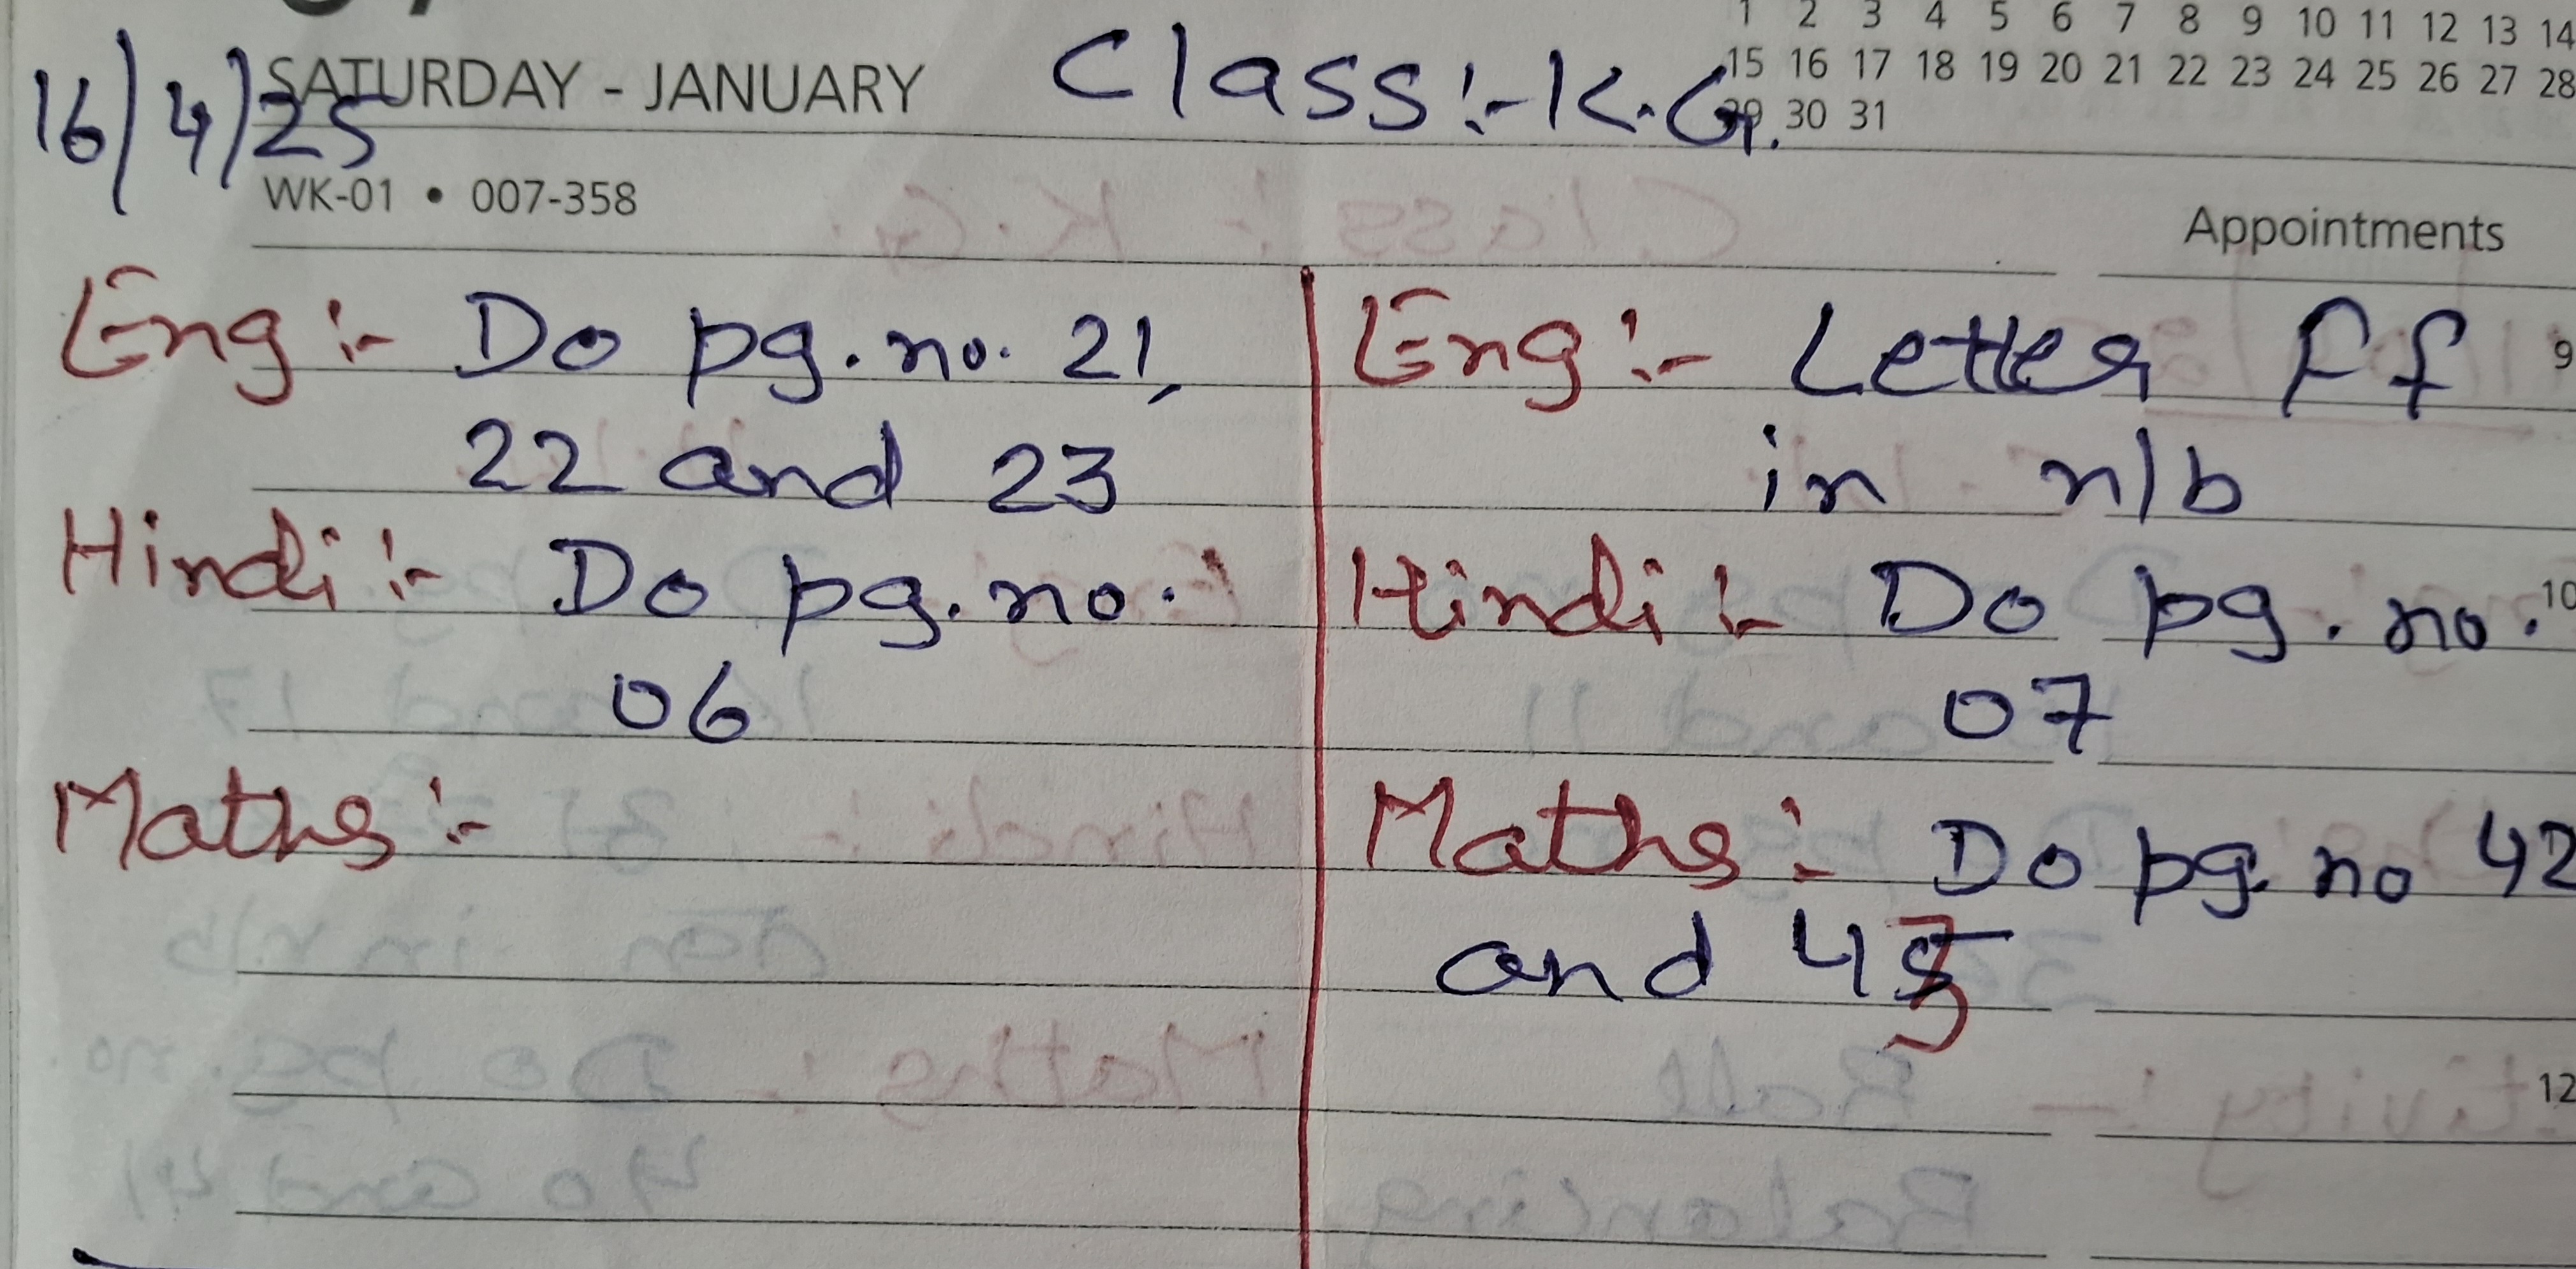 1 2 3 4 5 6 7 8 9 10 11 12 13 14
SATURDAY - JANUARY
15 16 17 18 19 20 21 22 23 24 25 26 27 28
29 30 31
16/4/25
Class:- K.G.
WK-01 • 007-358
Appointments
Eng:- Do pg. no. 21,
22 and 23
Hindi:- Do pg. no.
06
Maths:-
Eng:- Letter Ff
9
in n/b
Hindi:- Do pg. no.
10
07
Maths:- Do pg. no 42
and 43
12